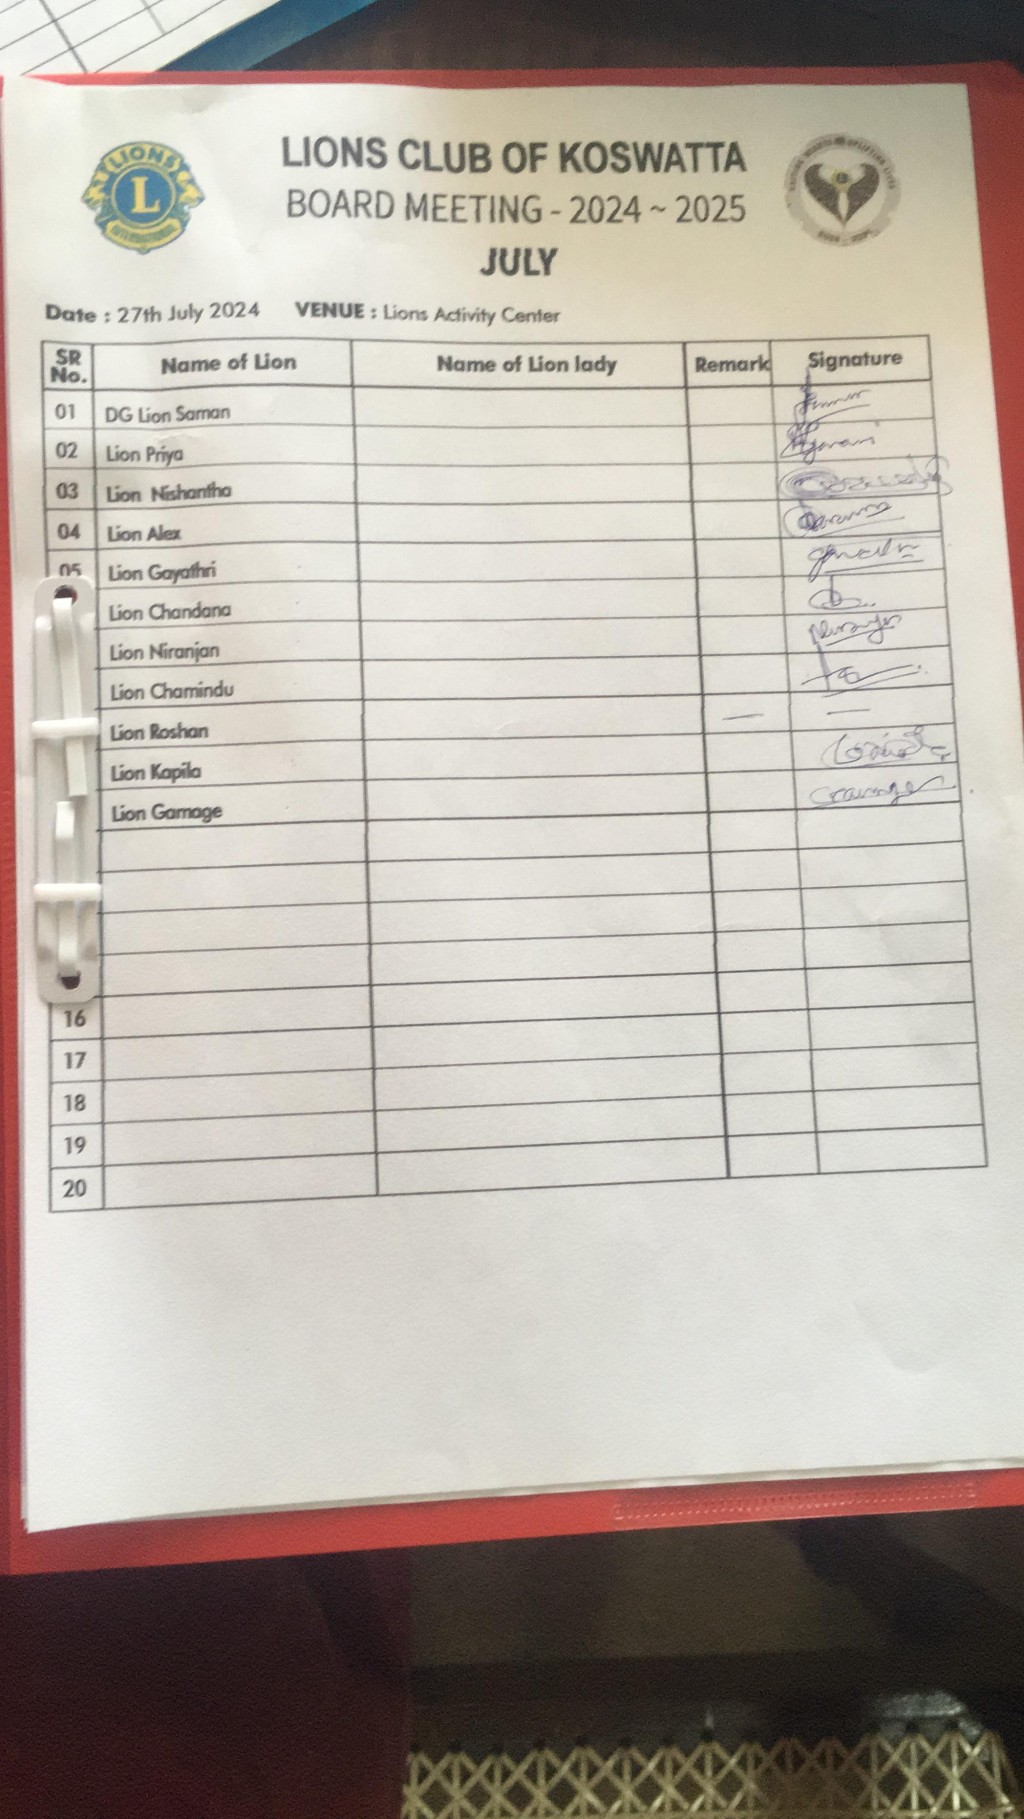 LIONS INTERNATIONAL
L
LIONS CLUB OF KOSWATTA
BOARD MEETING - 2024 ~ 2025
JULY
Date : 27th July 2024 VENUE : Lions Activity Center
SR No. Name of Lion Name of Lion lady Remark Signature
01 DG Lion Saman
02 Lion Priya
03 Lion Nishantha
04 Lion Alex
05 Lion Gayathri
Lion Chandana
Lion Niranjan
Lion Chamindu
Lion Roshan — —
Lion Kapila
Lion Gamage
16
17
18
19
20